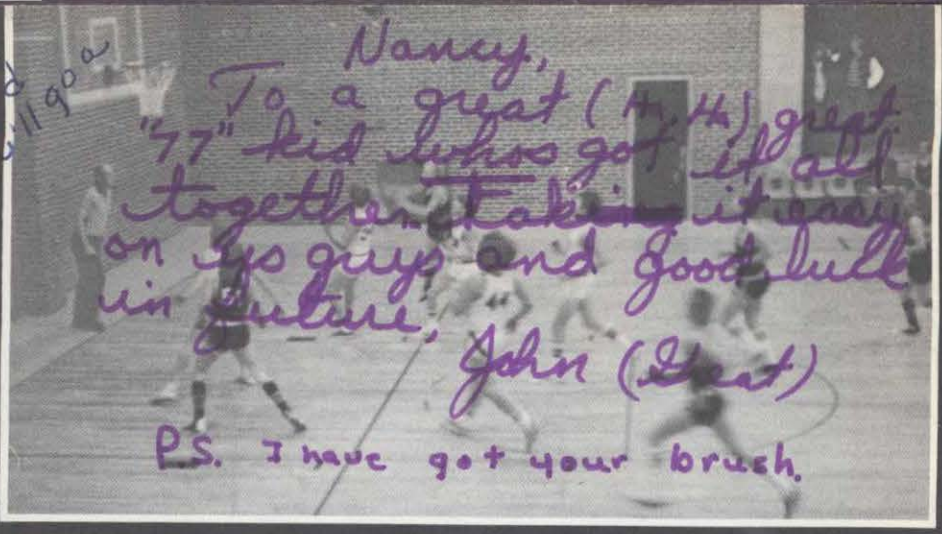 Nancy,
To a great (Ha, Ha) great
"77" kid whos got it all
together, taking it easy
on us guys and good luck
in future,
John (Great)
P.S. I have got your brush.
ll go a
44